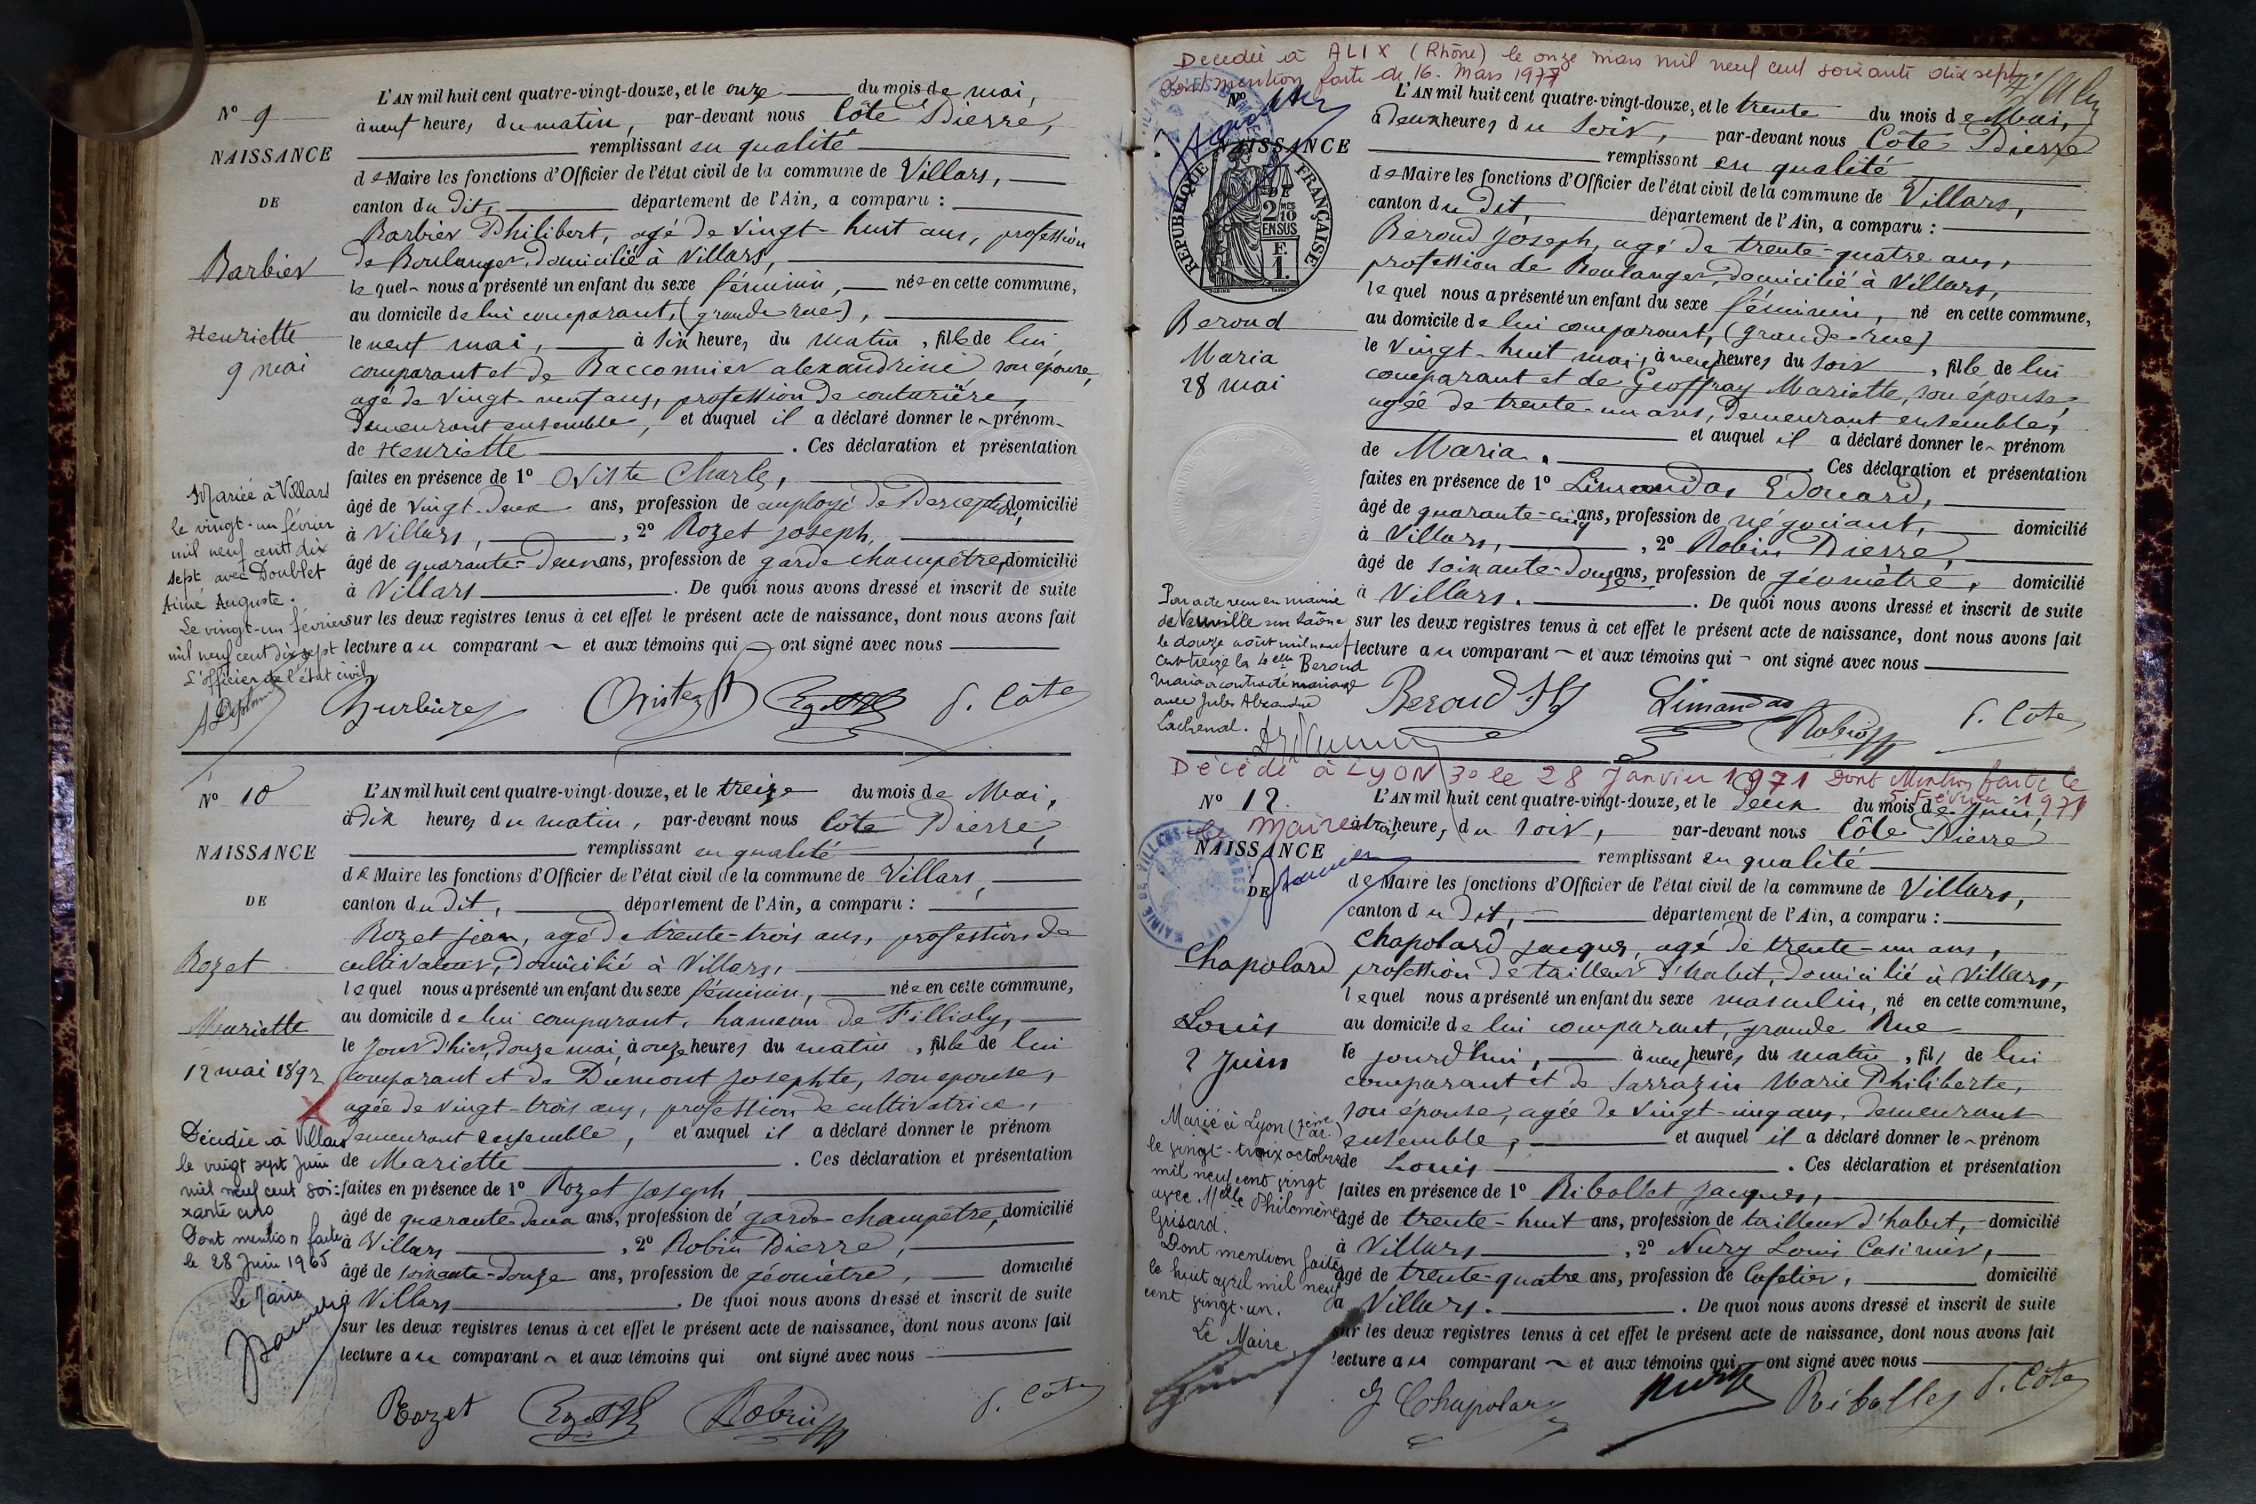 Nº 9
NAISSANCE
DE
Barbier
Henriette
9 mai
L'AN mil huit cent quatre-vingt-douze, et le onze du mois de mai,
à neuf heures du matin, par-devant nous Côte Pierre,
remplissant en qualité
de Maire les fonctions d'Officier de l'état civil de la commune de Villars,
canton du dit, département de l'Ain, a comparu :
Barbier Philibert, agé de vingt-huit ans, profession
de Boulanger, domicilié à Villars,
lequel nous a présenté un enfant du sexe féminin, née en cette commune,
au domicile de lui comparant, (grande rue),
le neuf mai, à six heures du matin, fille de lui
comparant et de Racconnier alexandrine son épouse,
agé de vingt-neuf ans, profession de couturière,
demeurant ensemble, et auquel il a déclaré donner le prénom
de Henriette . Ces déclaration et présentation
faites en présence de 1º Oviste Charles,
âgé de vingt-deux ans, profession de employé de Perception, domicilié
à Villars, , 2º Rozet joseph,
âgé de quarante-deux ans, profession de garde champêtre, domicilié
à Villars . De quoi nous avons dressé et inscrit de suite
sur les deux registres tenus à cet effet le présent acte de naissance, dont nous avons fait
lecture au comparant et aux témoins qui ont signé avec nous
Mariée à Villars
le vingt-un février
mil neuf cent dix
sept avec Doublet
Aimé Auguste.
Le vingt-un février
mil neuf cent dix sept
L'officier de l'état civil
P. Côte
Nº 10
NAISSANCE
DE
Rozet
Mariette
12 mai 1892
L'AN mil huit cent quatre-vingt-douze, et le treize du mois de Mai,
à dix heures du matin, par-devant nous Côte Pierre,
remplissant en qualité
de Maire les fonctions d'Officier de l'état civil de la commune de Villars,
canton du dit, département de l'Ain, a comparu :
Rozet jean, agé de trente-trois ans, profession de
cultivateur, domicilié à Villars,
lequel nous a présenté un enfant du sexe féminin, née en cette commune,
au domicile de lui comparant, hameau de Fillioly,
le jour d'hier, douze mai, à onze heures du matin, fille de lui
comparant et de Dumont josephte, son épouse,
agée de vingt-trois ans, profession de cultivatrice,
demeurant ensemble, et auquel il a déclaré donner le prénom
de Mariette . Ces déclaration et présentation
faites en présence de 1º Rozet joseph,
âgé de quarante-deux ans, profession de garde champêtre, domicilié
à Villars , 2º Robin Pierre,
âgé de soixante-douze ans, profession de géomètre, domicilié
à Villars . De quoi nous avons dressé et inscrit de suite
sur les deux registres tenus à cet effet le présent acte de naissance, dont nous avons fait
lecture au comparant et aux témoins qui ont signé avec nous
Décédée à Villars
le vingt sept Juin
mil neuf cent soi-
xante cinq
Dont mention faite
le 28 Juin 1965
Le Maire
Rozet Robin P. Côte
Décédée à ALIX (Rhône) le onze mars mil neuf cent soixante dix sept
dont mention faite le 16 Mars 1977
Nº
NAISSANCE
RÉPUBLIQUE FRANÇAISE
2 10
EN SUS
F. 1.
Beroud
Maria
28 mai
L'AN mil huit cent quatre-vingt-douze, et le trente du mois de Mai,
à deux heures du soir, par-devant nous Côte Pierre
remplissant en qualité
de Maire les fonctions d'Officier de l'état civil de la commune de Villars,
canton du dit, département de l'Ain, a comparu :
Beroud Joseph, agé de trente-quatre ans,
profession de Boulanger, domicilié à Villars,
lequel nous a présenté un enfant du sexe féminin, né en cette commune,
au domicile de lui comparant, (grande-rue)
le vingt-huit mai, à neuf heures du soir, fille de lui
comparant et de Geoffray Mariette, son épouse,
agée de trente-un ans, demeurant ensemble,
et auquel il a déclaré donner le prénom
de Maria. Ces déclaration et présentation
faites en présence de 1º Limandas Edouard,
âgé de quarante-cinq ans, profession de négociant, domicilié
à Villars, , 2º Robin Pierre,
âgé de soixante-douze ans, profession de géomètre, domicilié
à Villars. . De quoi nous avons dressé et inscrit de suite
sur les deux registres tenus à cet effet le présent acte de naissance, dont nous avons fait
lecture au comparant et aux témoins qui ont signé avec nous
Par acte reçu en mairie
de Neuville sur Saône
le douze août mil neuf
cent treize la delle Beroud
Maria a contracté mariage
avec Jules Alexandre
Lachenal.
Beroud Limandas Robin P. Côte
Décédé à LYON 3e le 28 Janvier 1971 Dont Mention faite le
5 Février 1971
Le Maire
Nº 12.
NAISSANCE
DE
MAIRIE DE VILLARS
Chapolard
Louis
2 Juin
L'AN mil huit cent quatre-vingt-douze, et le Deux du mois de Juin,
à trois heures du soir, par-devant nous Côte Pierre
remplissant en qualité
de Maire les fonctions d'Officier de l'état civil de la commune de Villars,
canton du dit, département de l'Ain, a comparu :
Chapolard jacques, agé de trente-un ans,
profession de tailleur d'habit, domicilié à Villars,
lequel nous a présenté un enfant du sexe masculin, né en cette commune,
au domicile de lui comparant, grande Rue
le jourd'hui, à neuf heures du matin, fils de lui
comparant et de Sarrazin Marie Philiberte,
son épouse, agée de vingt-cinq ans, demeurant
ensemble, et auquel il a déclaré donner le prénom
de Louis . Ces déclaration et présentation
faites en présence de 1º Ribollet Jacques,
âgé de trente-huit ans, profession de tailleur d'habit, domicilié
à Villars , 2º Nury Louis Casimir,
âgé de trente-quatre ans, profession de Cafetier, domicilié
à Villars. . De quoi nous avons dressé et inscrit de suite
sur les deux registres tenus à cet effet le présent acte de naissance, dont nous avons fait
lecture au comparant et aux témoins qui ont signé avec nous
Marié à Lyon
le vingt-trois octobre
mil neuf cent vingt
avec Melle Philomène
Grisard.
Dont mention faite
le huit avril mil neuf
cent vingt-un.
Le Maire,
J Chapolard Nury Ribollet P. Côte